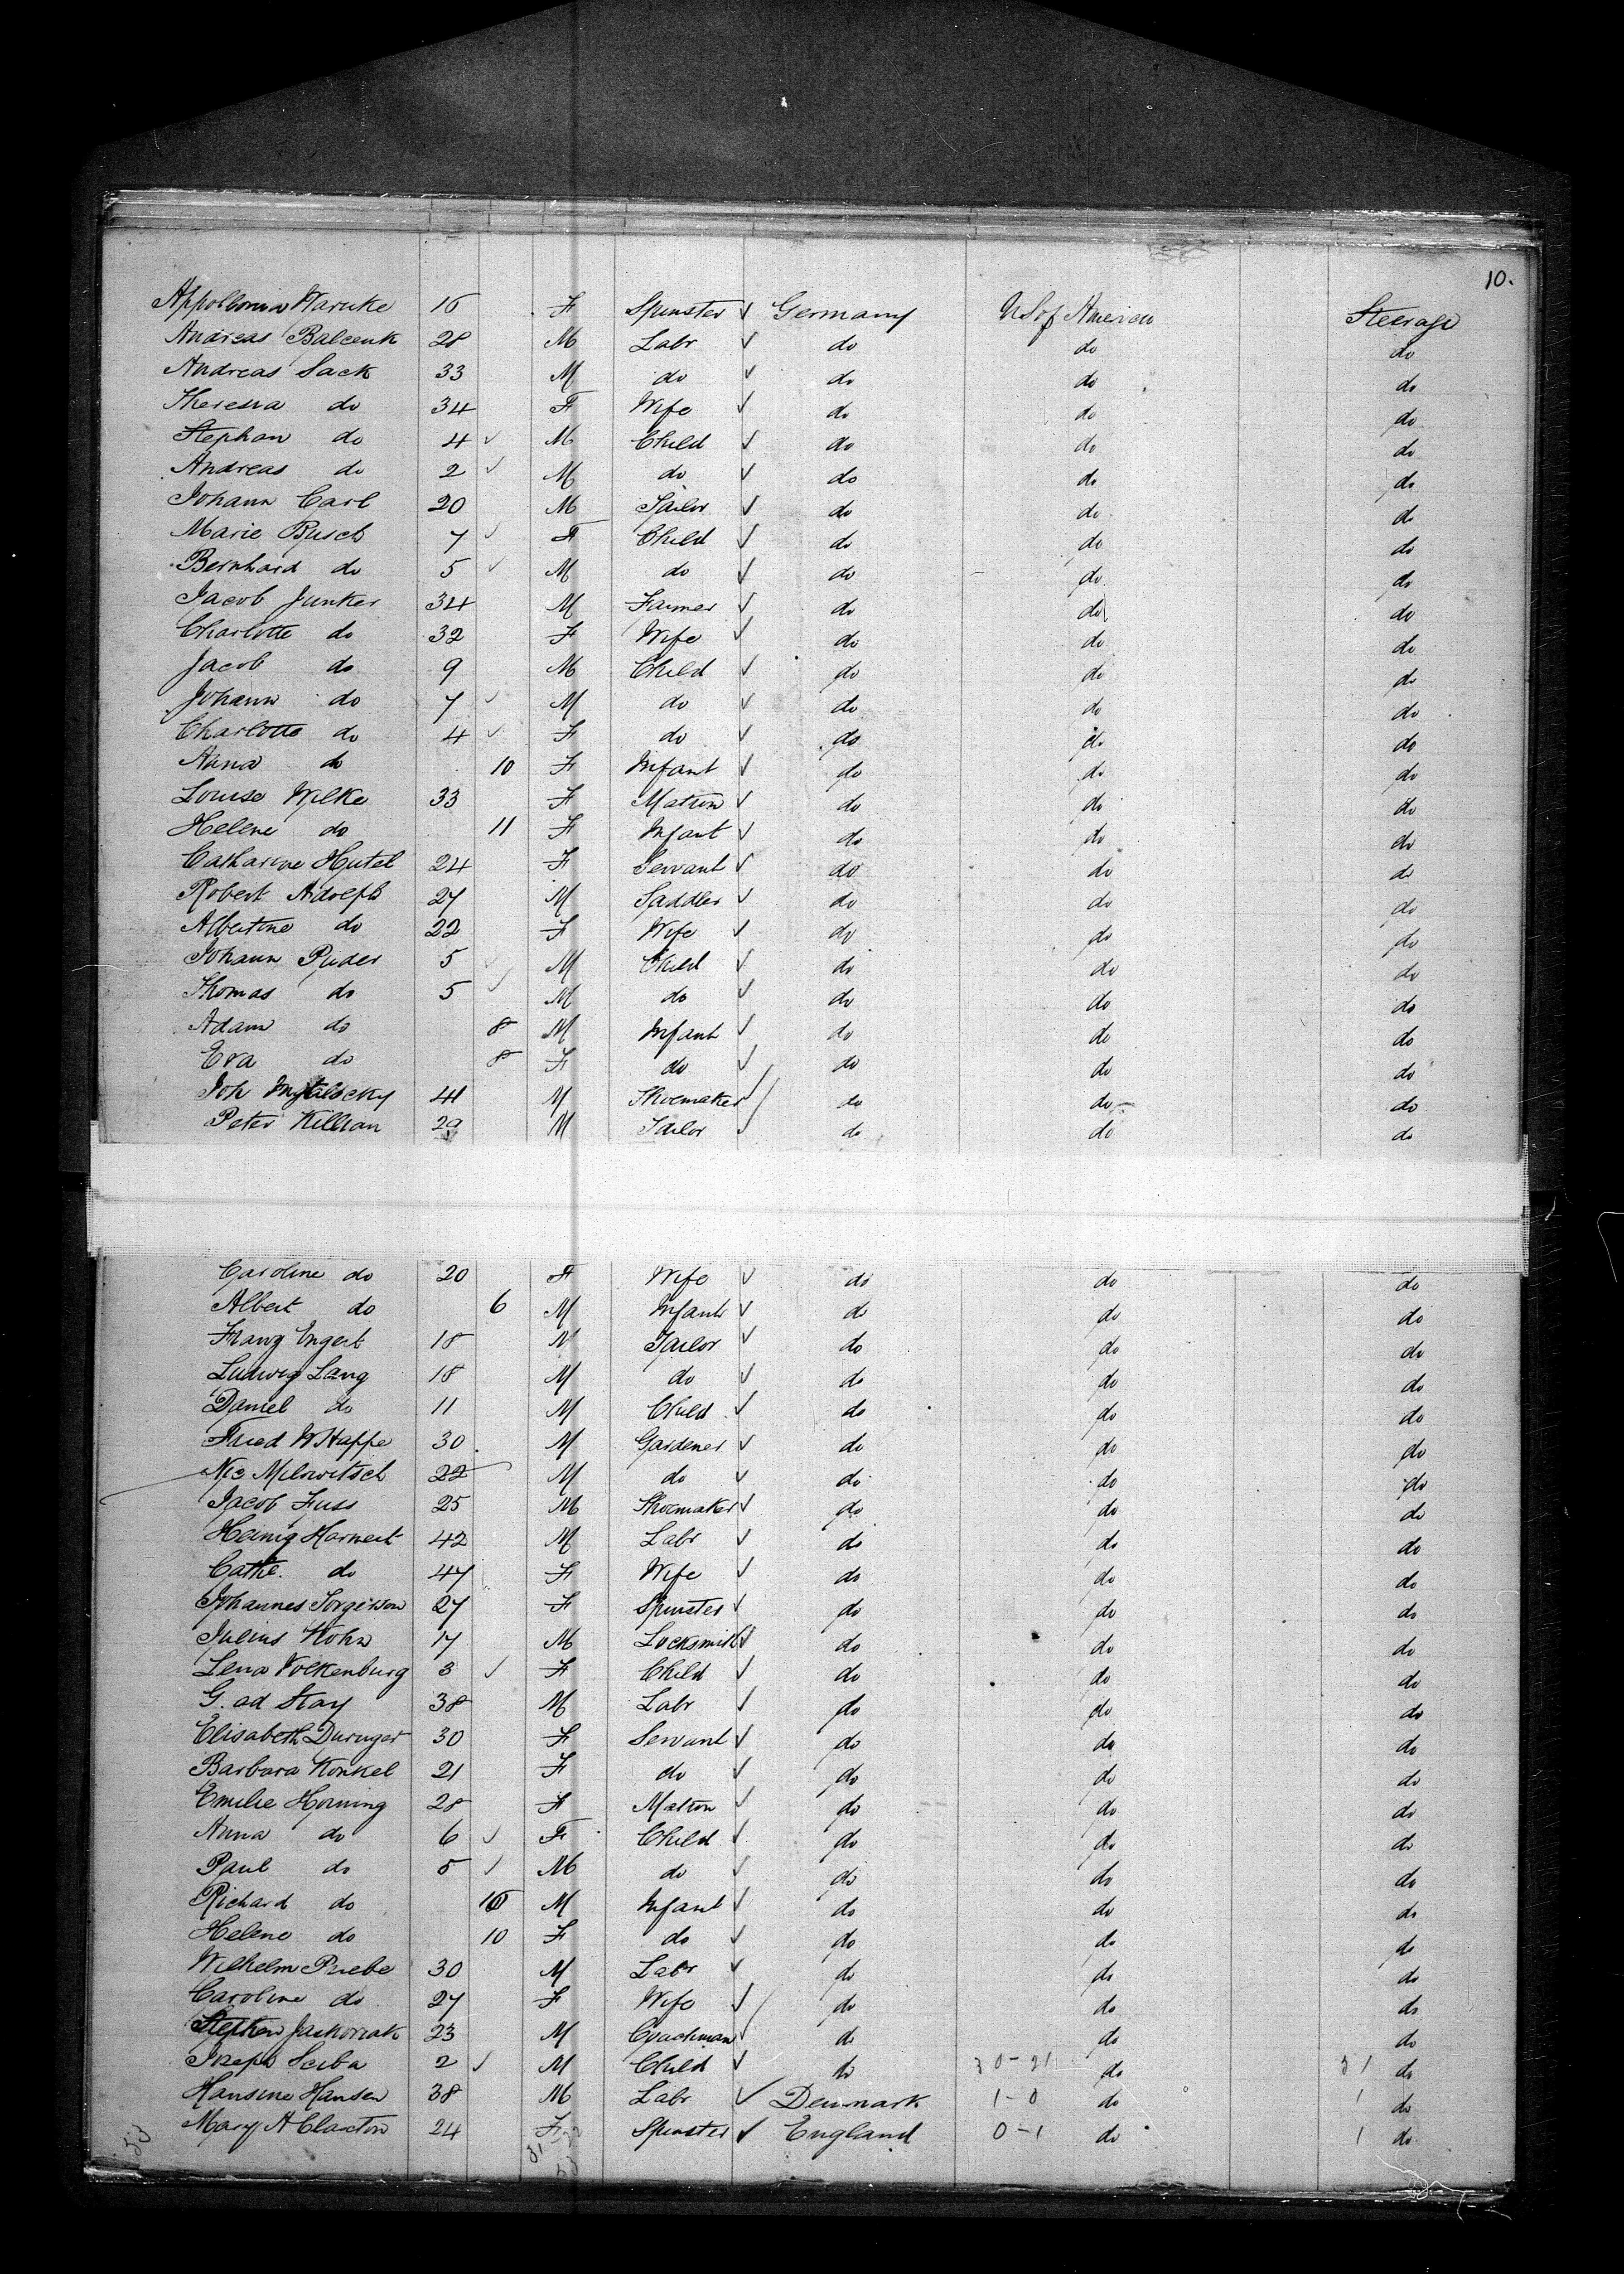 10.
Appollonia Warnke 16 F Spinster ✓ Germany U S of America Steerage
Andreas Balcenk 28 M Labr ✓ do do do
Andreas Sack 33 M do ✓ do do do
Theresia do 34 F Wife ✓ do do do
Stephan do 4 ✓ M Child ✓ do do do
Andreas do 2 ✓ M do ✓ do do do
Johann Carl 20 M Tailor ✓ do do do
Marie Busch 7 ✓ F Child ✓ do do do
Bernhard do 5 ✓ M do ✓ do do do
Jacob Junker 34 M Farmer ✓ do do do
Charlotte do 32 F Wife ✓ do do do
Jacob do 9 M Child ✓ do do do
Johann do 7 ✓ M do ✓ do do do
Charlotte do 4 ✓ F do ✓ do do do
Anna do 10 F Infant ✓ do do do
Louise Wilke 33 F Matron ✓ do do do
Helene do 11 F Infant ✓ do do do
Catharine Hutel 24 F Servant ✓ do do do
Robert Adolph 27 M Saddler ✓ do do do
Albertine do 22 F Wife ✓ do do do
Johann Puder 5 ✓ M Child ✓ do do do
Thomas do 5 ✓ M do ✓ do do do
Adam do 8 M Infant ✓ do do do
Eva do 8 F do ✓ do do do
Joh 41 M Shoemaker ✓ do do do
Peter Killian 29 M Tailor ✓ do do do
Caroline do 20 F Wife ✓ do do do
Albert do 6 M Infant ✓ do do do
Franz Engert 18 M Tailor ✓ do do do
Ludwig Lang 18 M do ✓ do do do
Daniel do 11 M Child ✓ do do do
Fried W Happe 30 M Gardener ✓ do do do
Nic Milowitsch 22 M do ✓ do do do
Jacob Fuss 25 M Shoemaker ✓ do do do
Heinig Harnert 42 M Labr ✓ do do do
Cathe. do 47 F Wife ✓ do do do
Johannes Jorgisson 27 F Spinster ✓ do do do
Julius Kohn 17 M Locksmith ✓ do do do
Lena Volkenburg 3 ✓ F Child ✓ do do do
G. ad Stay 38 M Labr ✓ do do do
Elisabeth Duringer 30 F Servant ✓ do do do
Barbara Konkel 21 F do ✓ do do do
Emilie Horning 28 F Matron ✓ do do do
Anna do 6 ✓ F Child ✓ do do do
Paul do 5 ✓ M do ✓ do do do
Richard do 10 M Infant ✓ do do do
Helene do 10 F do ✓ do do do
Wilhelm Priebe 30 M Labr ✓ do do do
Caroline do 27 F Wife ✓ do do do
Stephen Jackoviak 23 M Coachman ✓ do do do
Joseph Sciba 2 ✓ M Child ✓ do 30-21 do 51 do
Hansine Hansen 38 M Labr ✓ Denmark 1-0 do 1 do
Mary A Claxton 24 F Spinster ✓ England 0-1 do 1 do
53 31-22
53